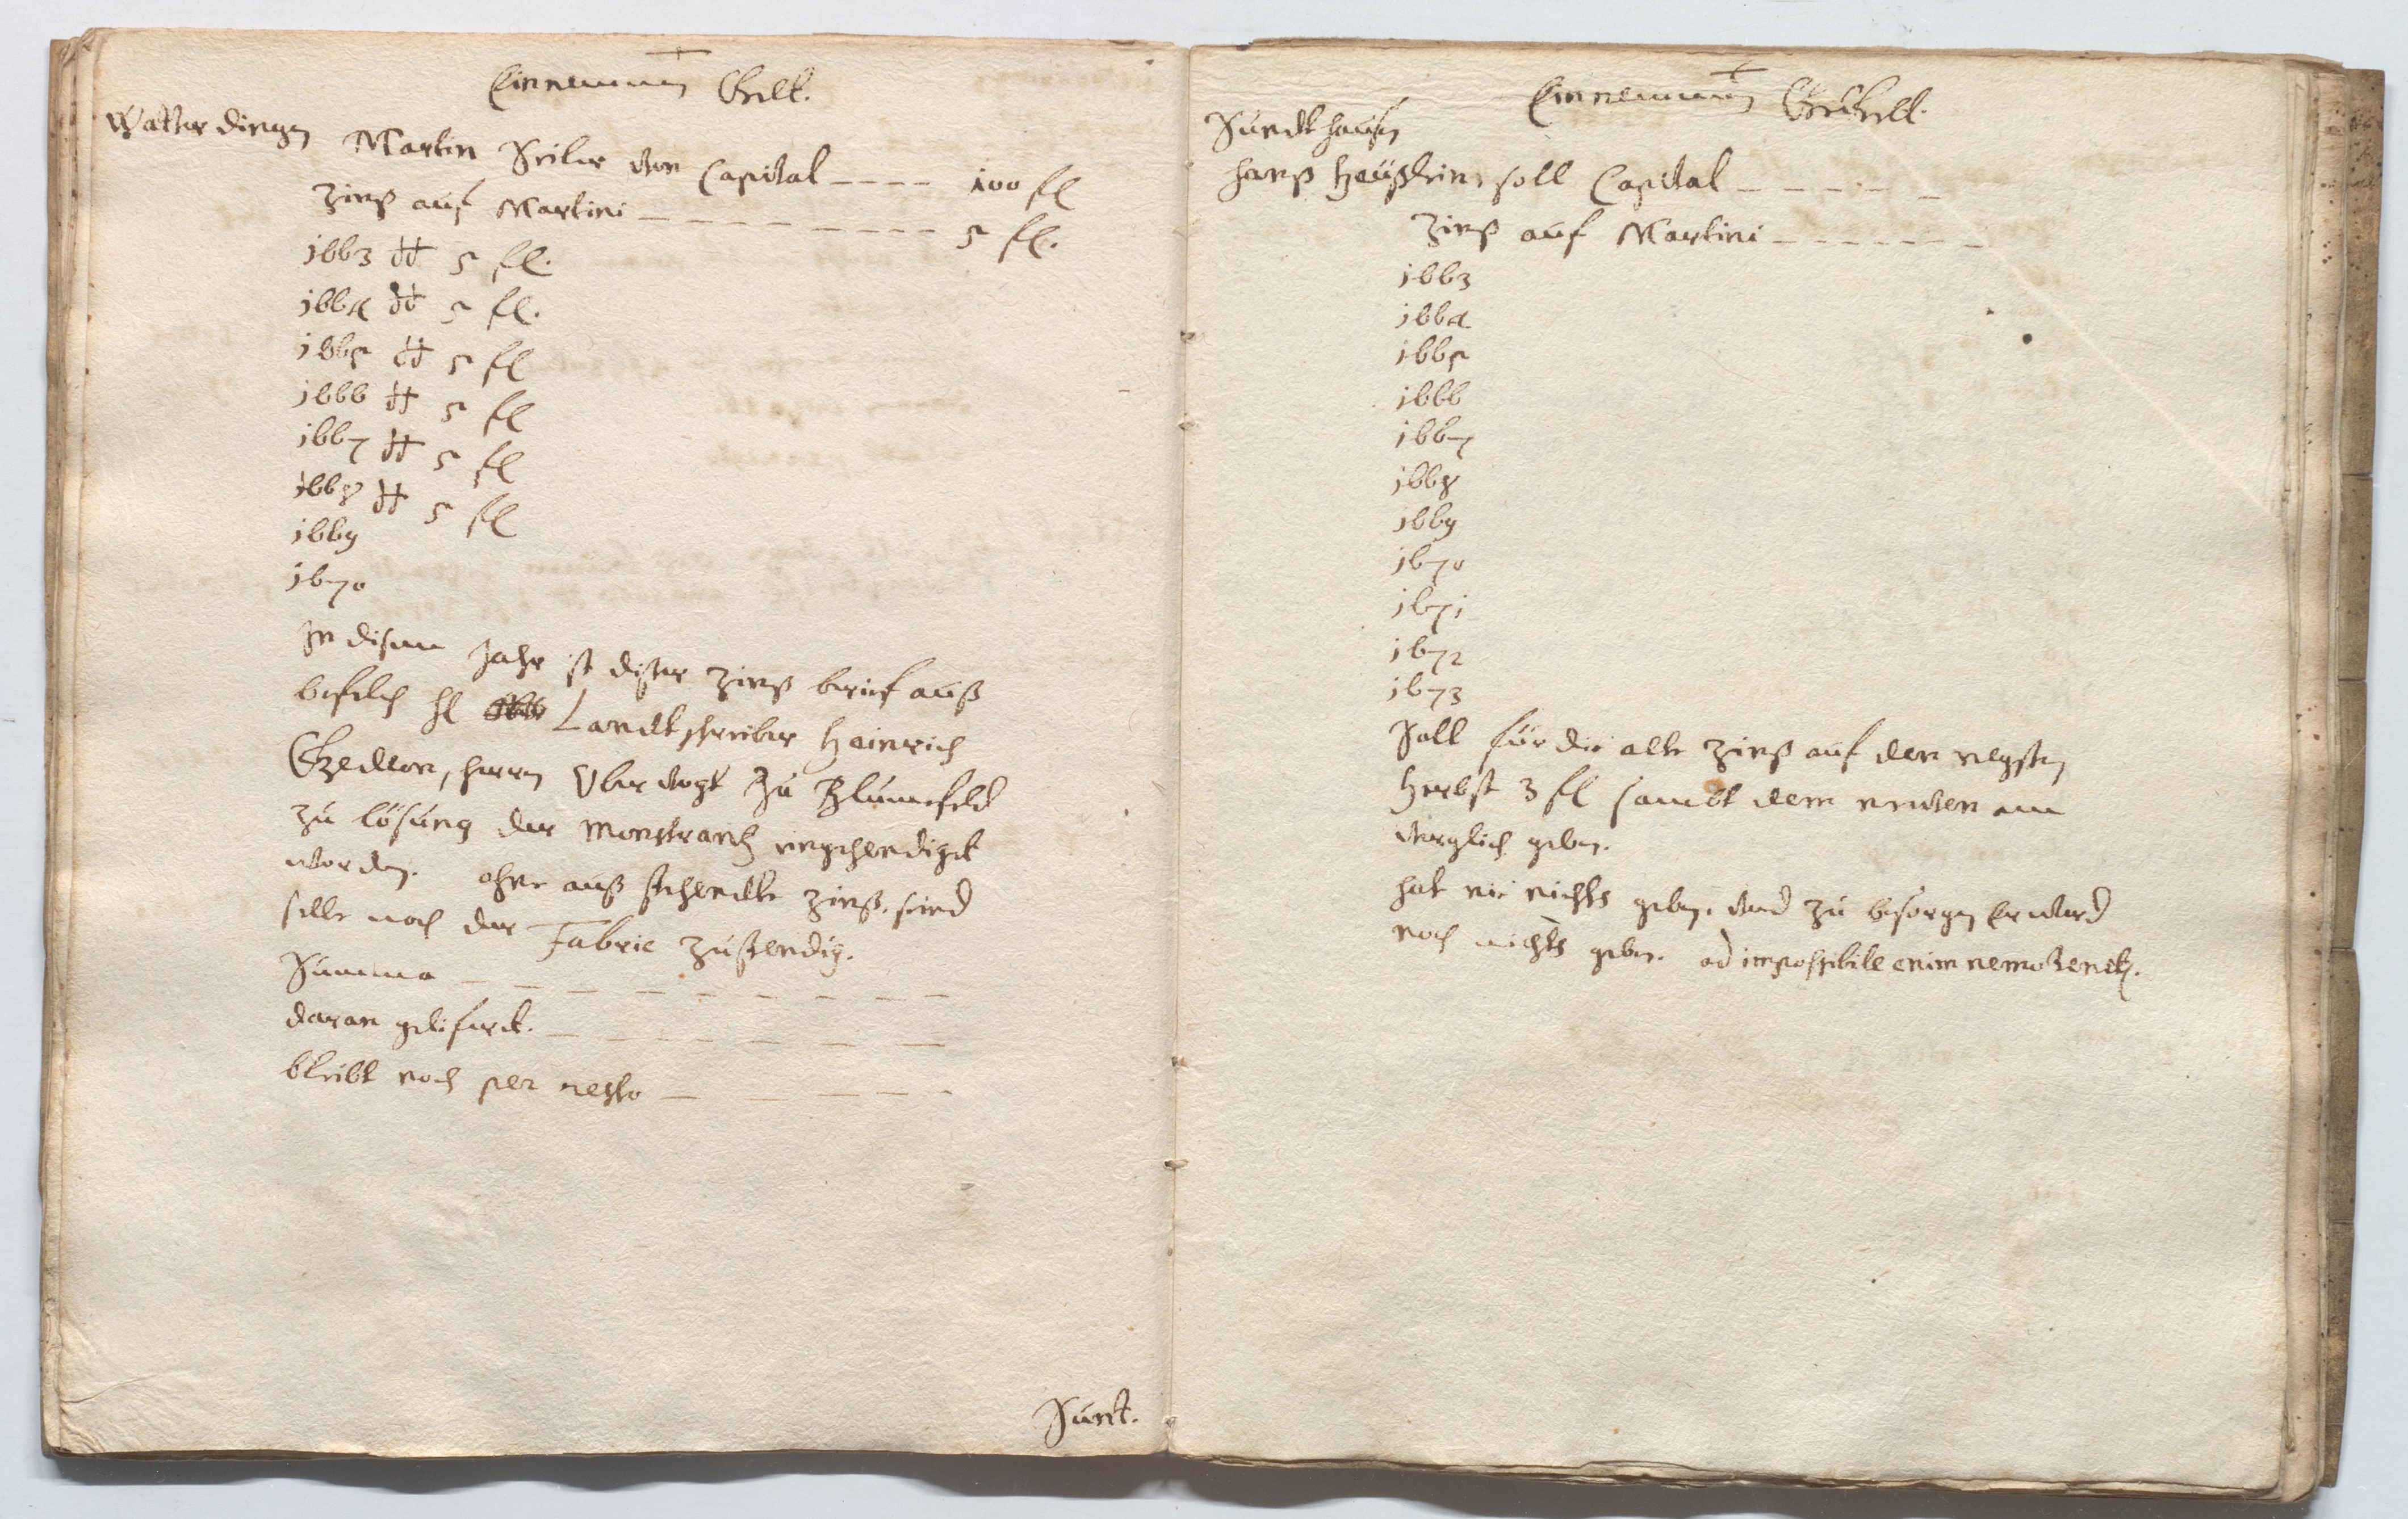 Einnemung Gelt.
Watterdingen Martin Seiler von Capital ---- 100 fl
Zinß auf Martini ---------- 5 fl.
1663 dt 5 fl.
1664 dt 5 fl.
1665 dt 5 fl
1666 dt 5 fl
1667 dt 5 fl
1668 dt 5 fl
1669
1670
In disem Jahr ist diser Zinß brief auß
befelch H Landtschreiber Heinrich
herrn Obervogt zu Blumefeld
zu lösung der Monstrantz eingehendiget
worden. ohne auß stehendte Zinß. seind
selbe noch der Fabric zustendig.
Summa - - - - - - - - - -
daran gelifert. - - - - - - -
bleibt noch per resto - - - - - -
Sunt.
Einnemung Gelt.
Sundthausen
Hanß Heüßlein, soll Capital - - - - - -
Zinß auf Martini - - - - - - -
1663
1664
1665
1666
1667
1668
1669
1670
1671
1672
1673
Soll für die alte Zinß auf den negsten
Herbst 3 fl sambt dem
geben.
hat nie nichts geben. vnd zu besorgen Er werd
noch nichts geben. ad impossibile enim nemo tenetur.